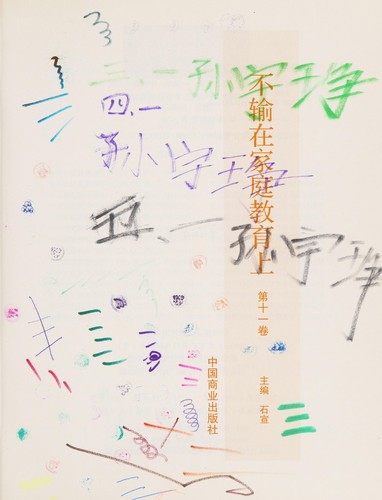 三、一 孙宇琤
四、一
孙宇琤
五、一 孙宇琤
不输在家庭教育上
第十一卷
主编 石宣
中国商业出版社
三